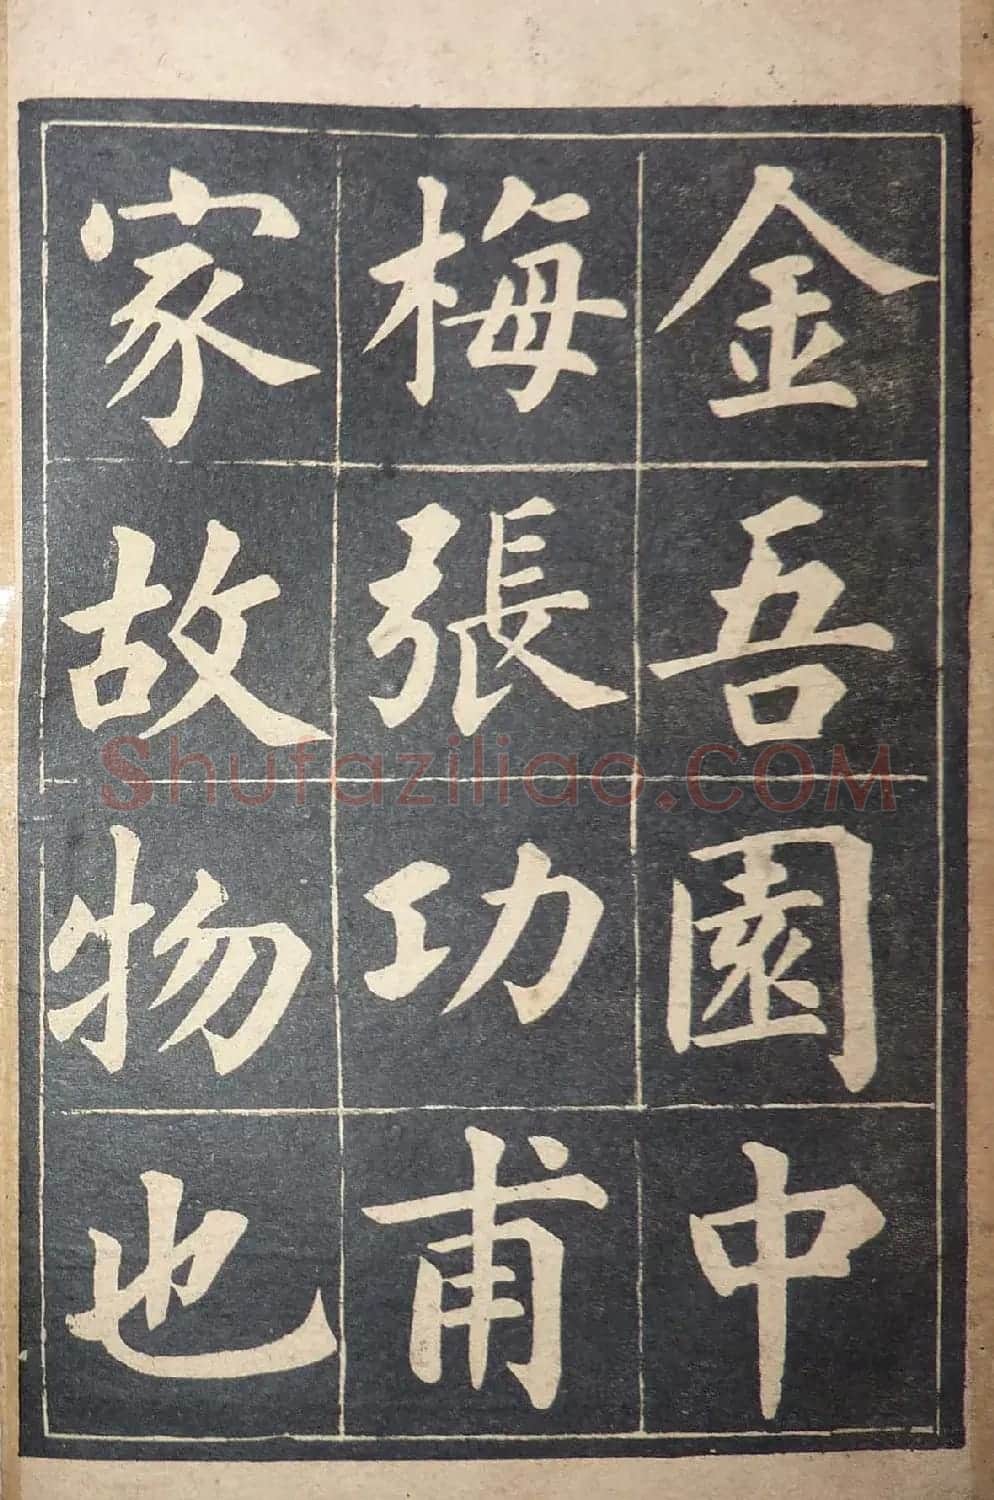 金吾園中
梅張功甫
家故物也
Shufaziliao.COM